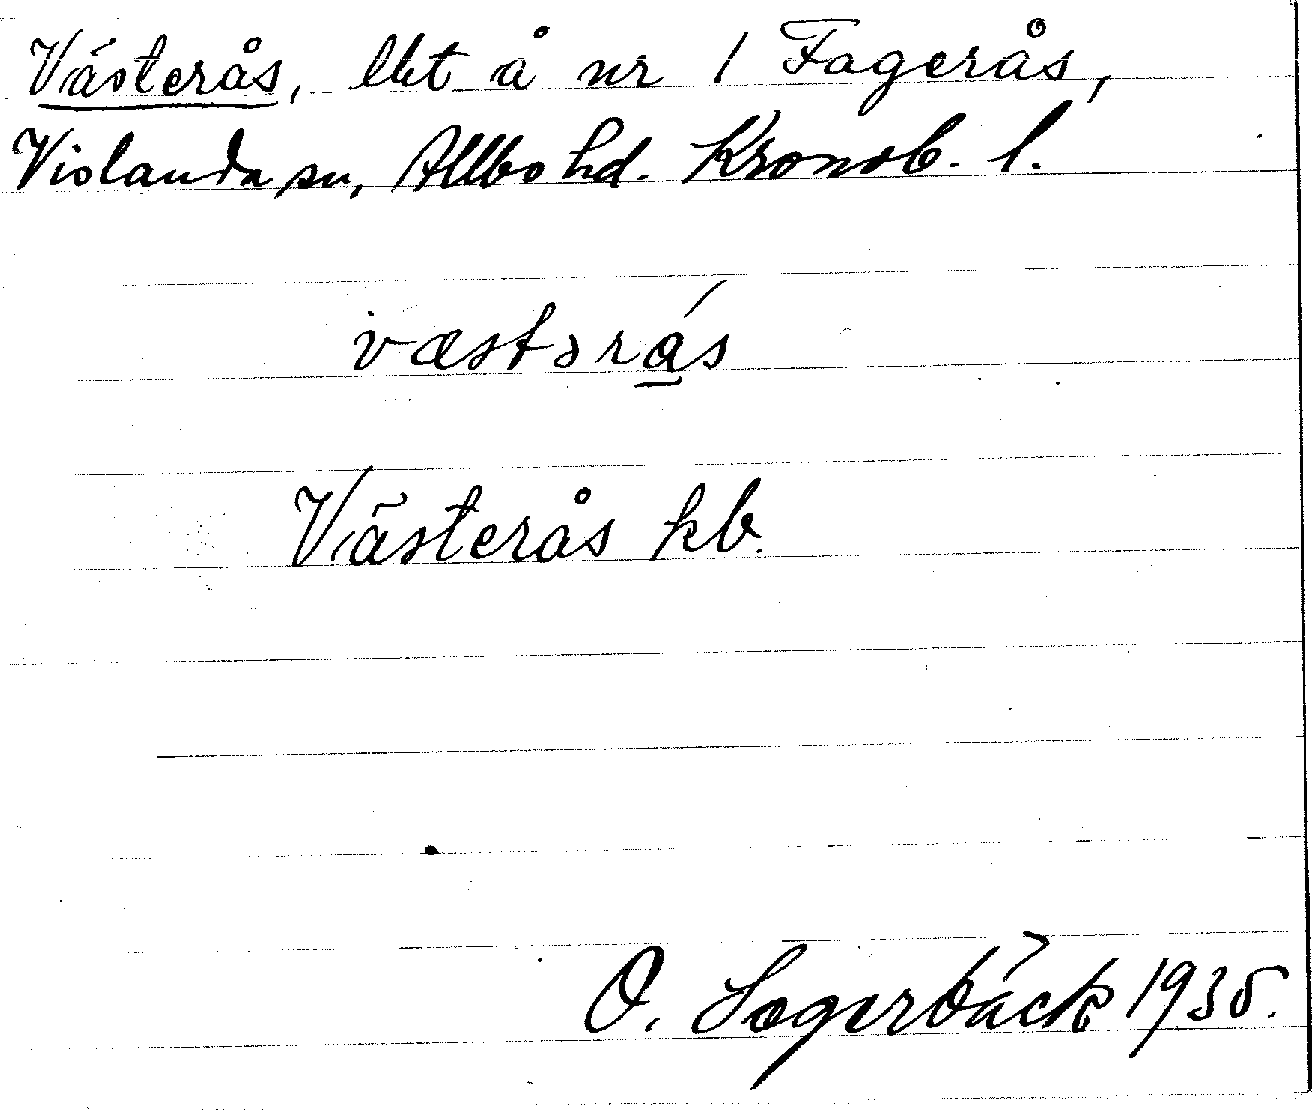 Västerås, lht å nr 1 Fagerås,
Vislanda sn, Allbo hd. Kronob. l.
væstərás
Västerås kb.
O. Lagerbäck 1935.